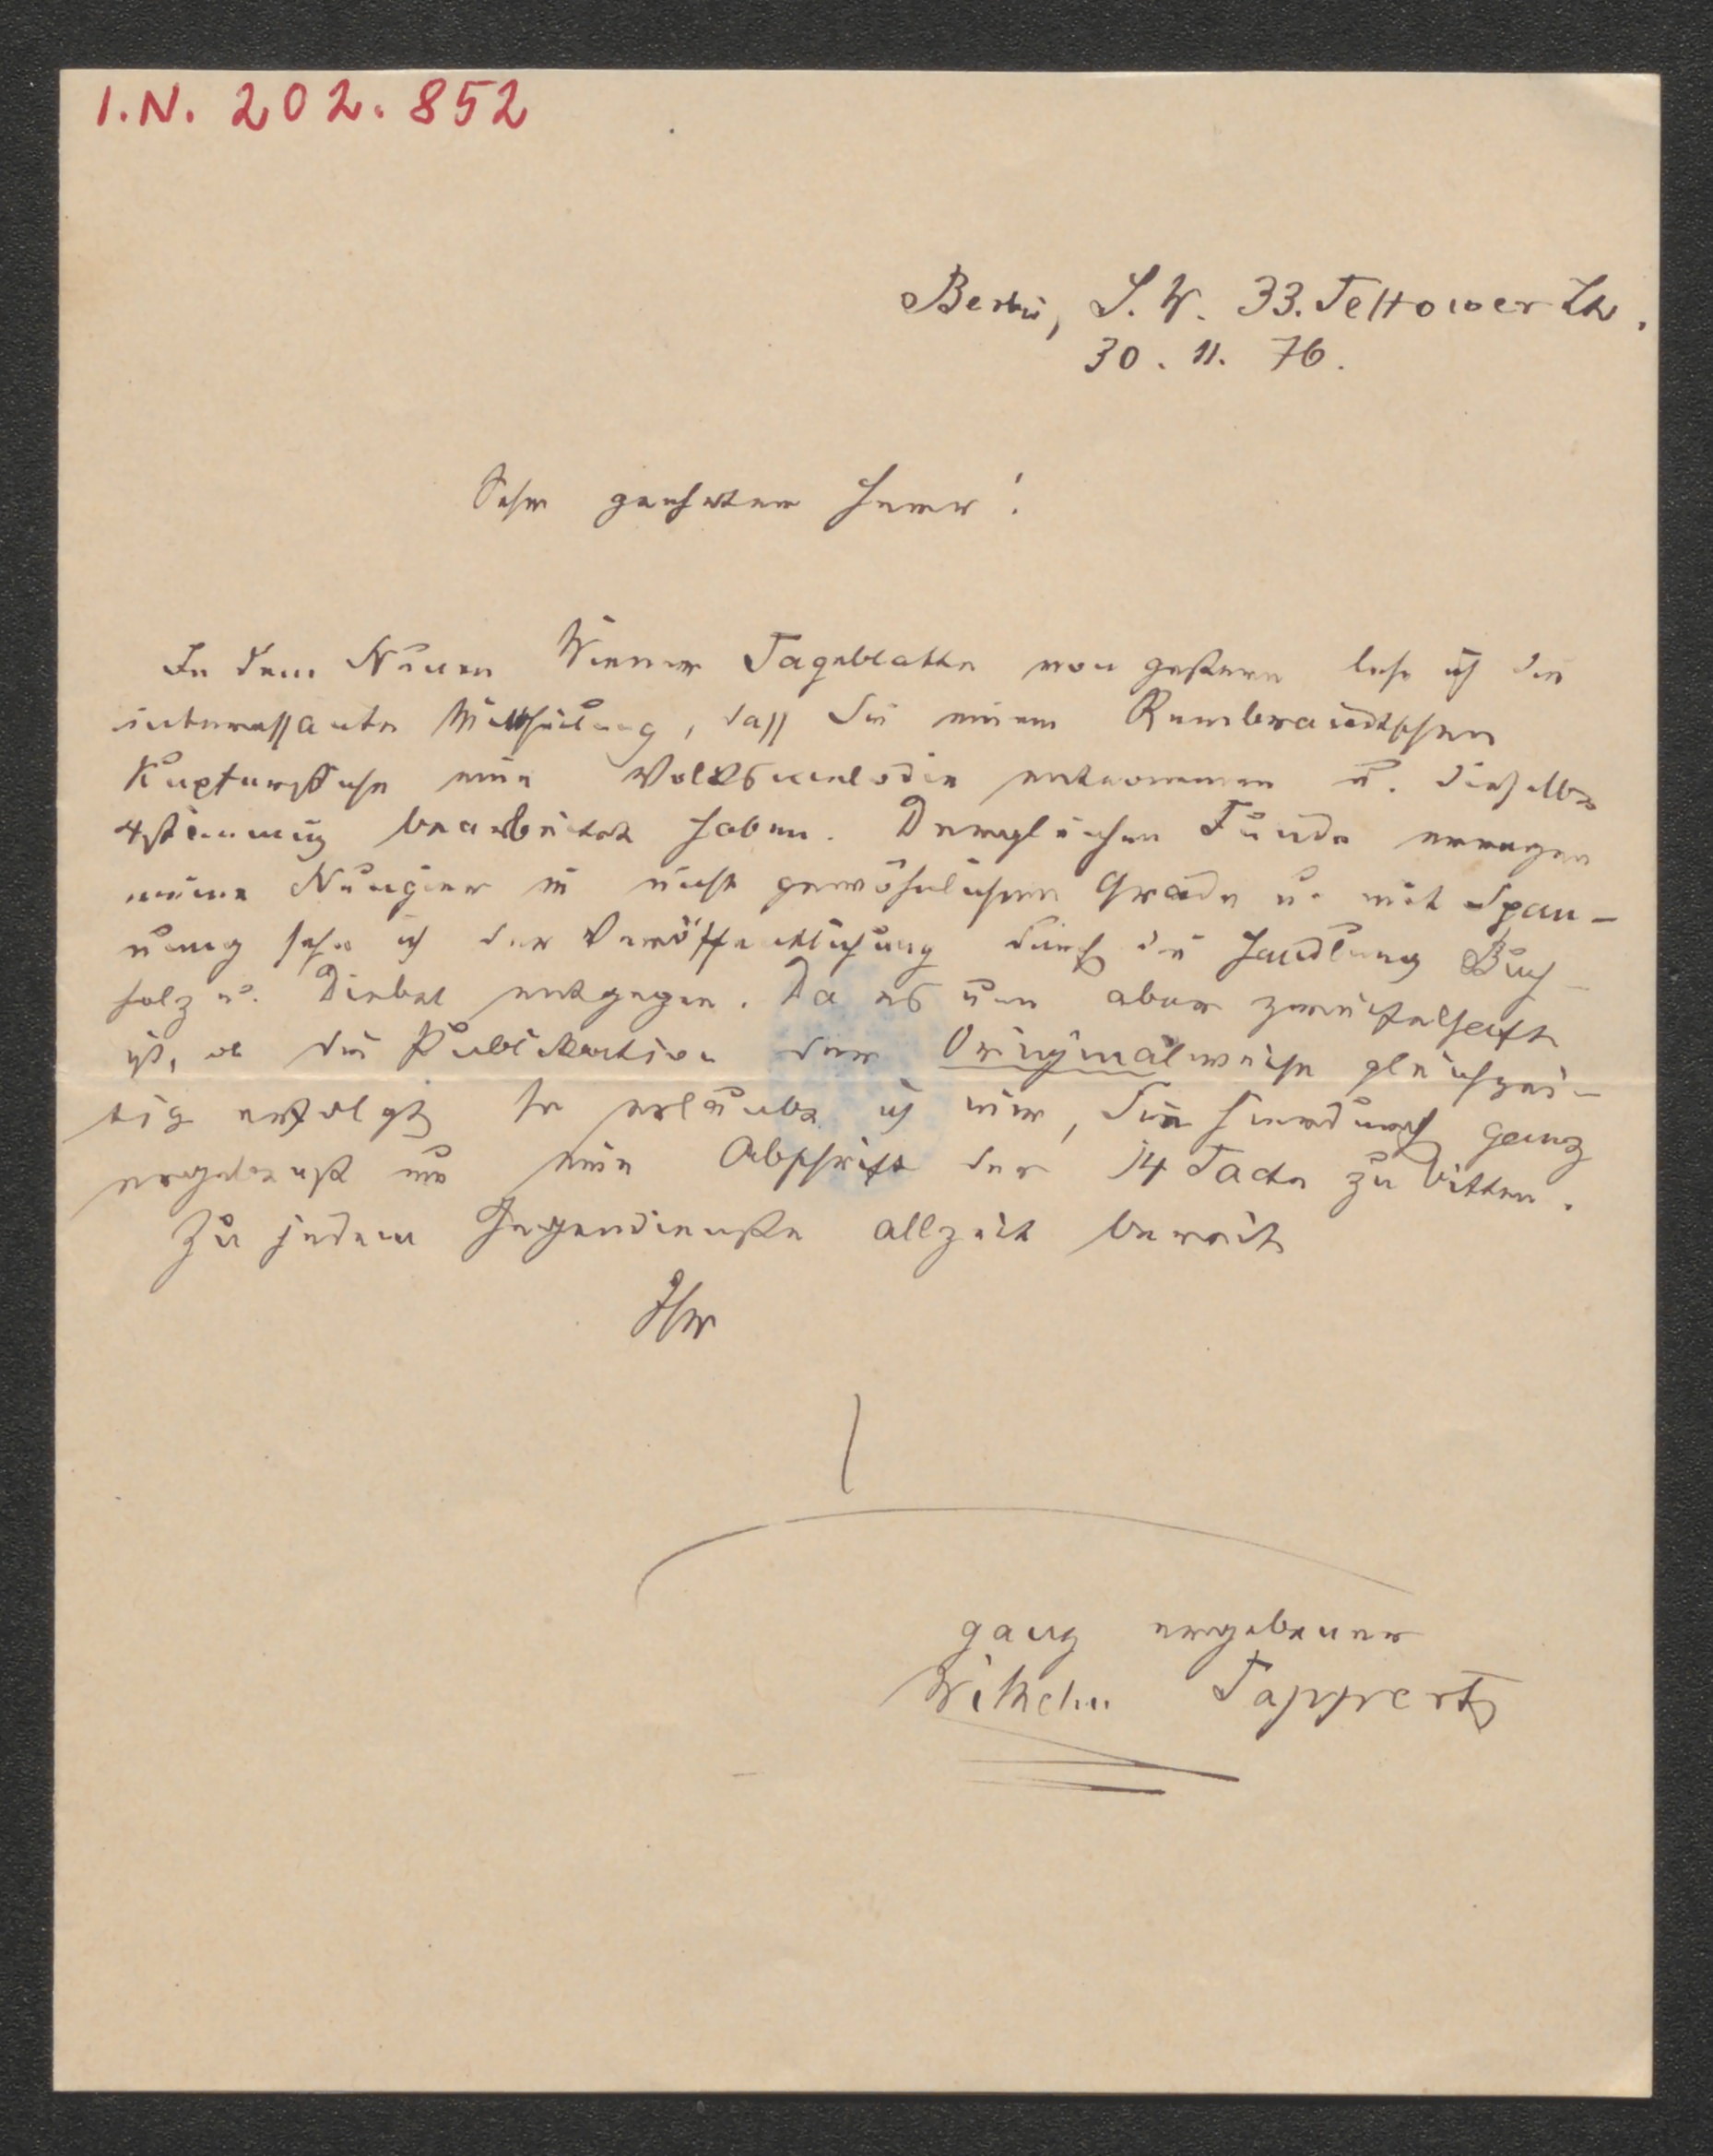 I.N. 202.852
Berlin, S. W. 33. Teltower
30. 11. 76.
Sehr geehrter Herr!
In dem Neuen Wiener Tageblatte von gestern lese ich die
interessante Mittheilung, dass Sie einem Rembrandtschen
Kupferstiche eine Volksmelodie entnommen u. dieselbe
4stimmig bearbeitet haben. Dergleichen Funde erregen
meine Neugier in nicht gewöhnlichem Grade u. mit Span-
nung sehe ich der Veröffentlichung durch die Handlung Buch-
holz u. Diebel entgegen. Da es nun aber zweifelhaft
ist, ob die Publikation der Originalweise gleichzei-
tig erfolgt, so erlaube ich mir, Sie hierdurch ganz
ergebenst um eine Abschrift der 14 Tacte zu bitten.
Zu jedem Gegendienste allzeit bereit
Ihr
ganz ergebener
Wilhelm Tappert